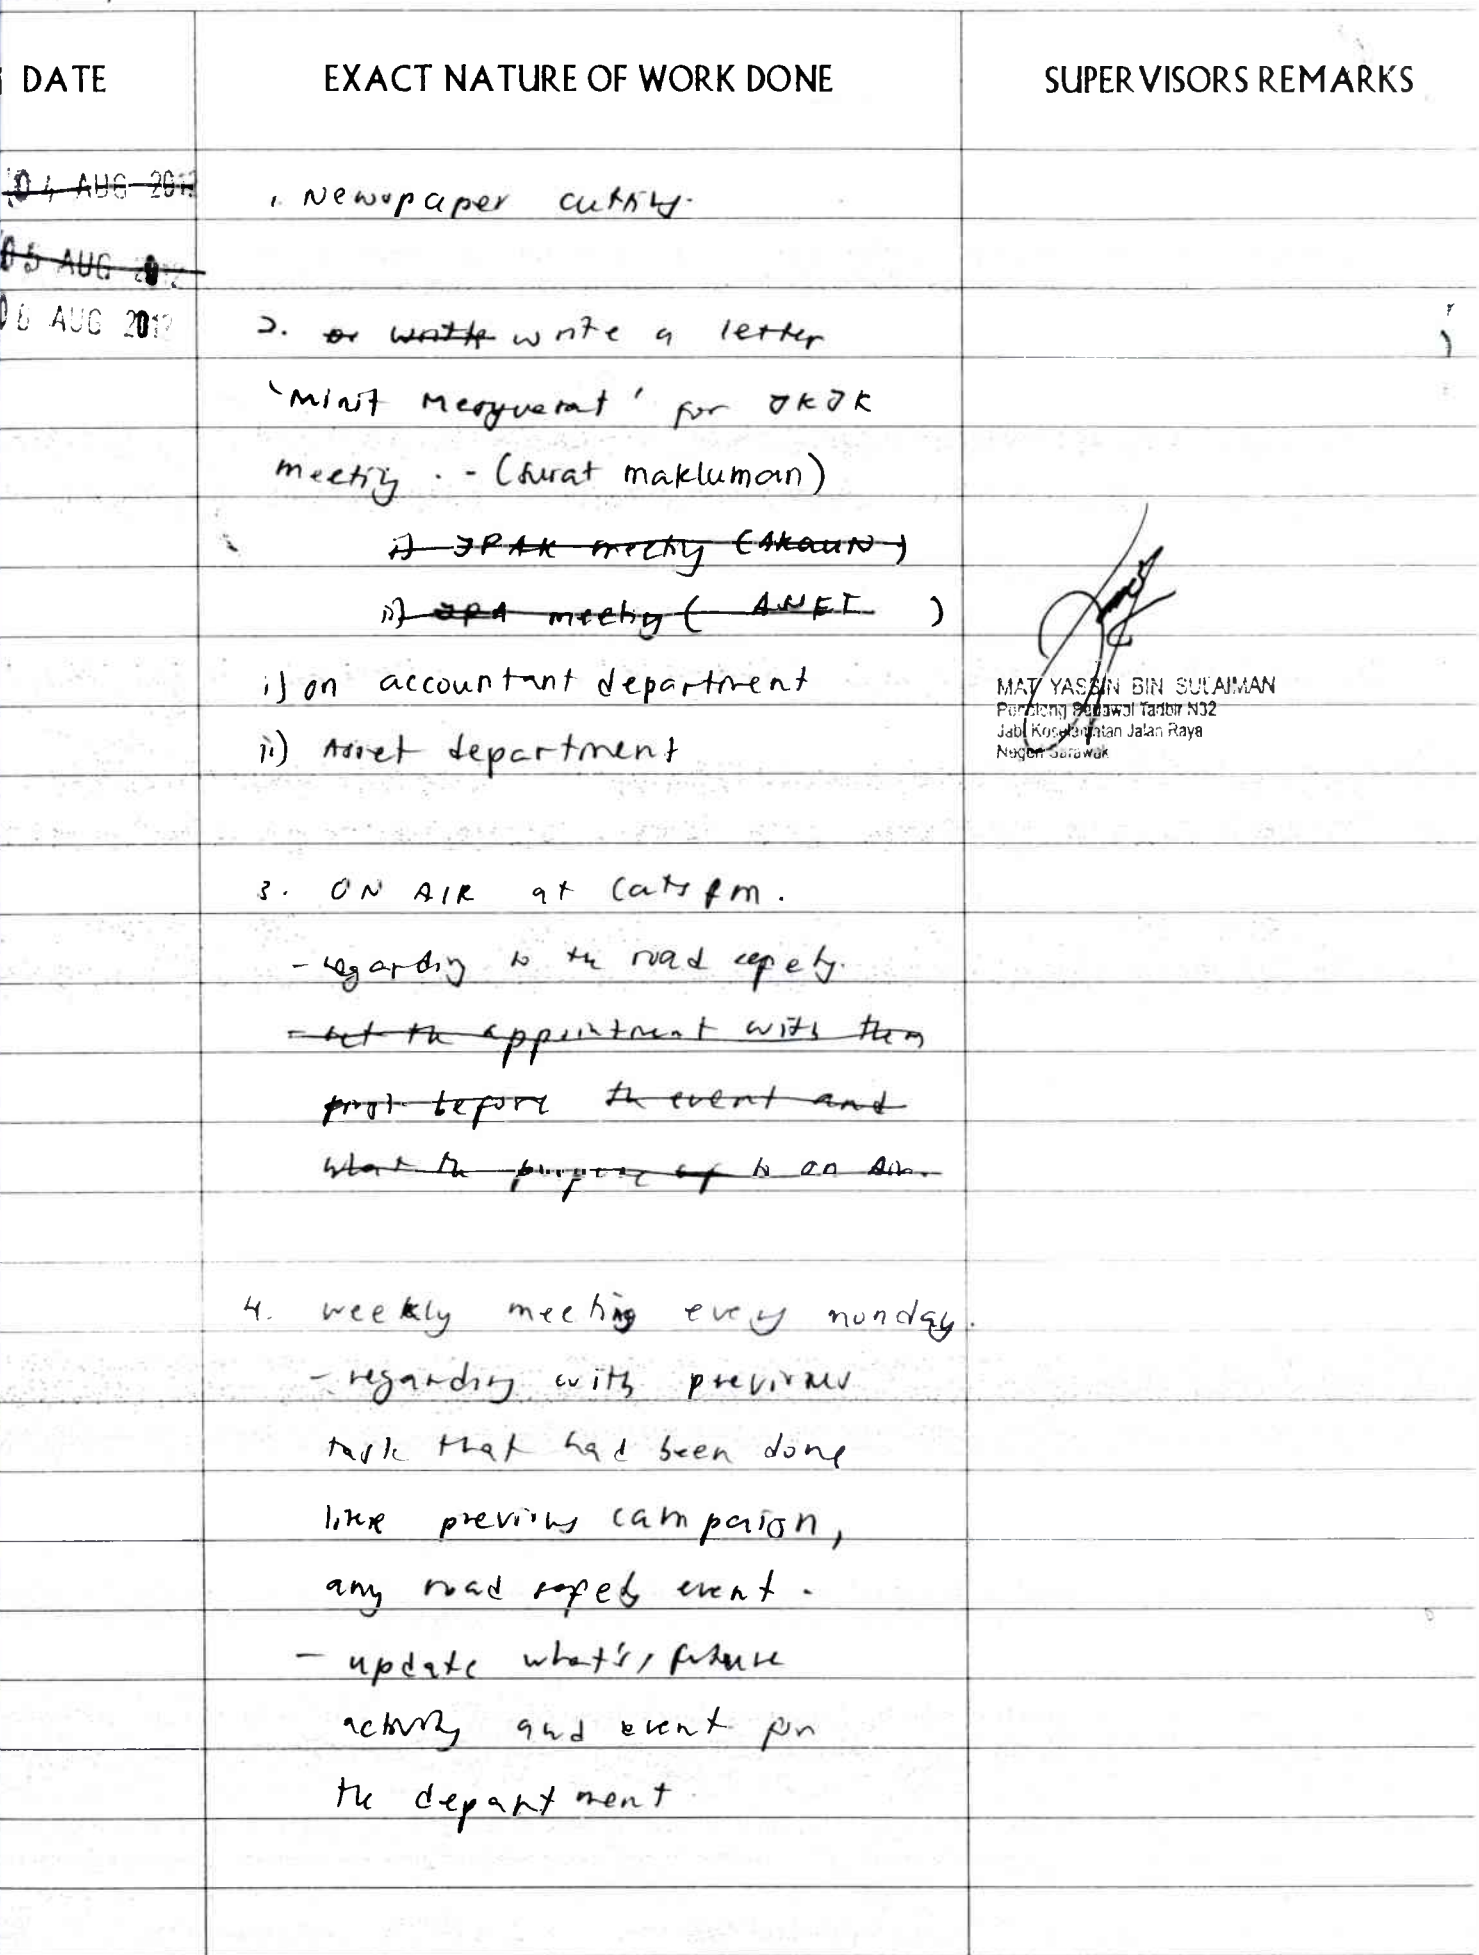 DATE EXACT NATURE OF WORK DONE SUPERVISORS REMARKS
04 AUG 2012
1. Newspaper cutting.
05 AUG 2012
06 AUG 2012
2. or write a letter
'Minit Mesyuarat' for JKJK
meeting. - (Surat makluman)
i) JPAK meeting (AKAUN)
ii) JPA meeting ( ASET )
i) on accountant department
ii) Asset department
MAT YASSIN BIN SULAIMAN
Penolong Pegawai Tadbir N32
Jab. Keselamatan Jalan Raya
Negeri Sarawak
3. ON AIR at Cats fm.
- regarding to the road safety.
- set the appointment with them
first before the event and
what the purpose of to on Air.
4. weekly meeting every monday.
- regarding with previous
task that had been done
like previous campaign,
any road safety event.
- update what's, future
activity and event for
the department